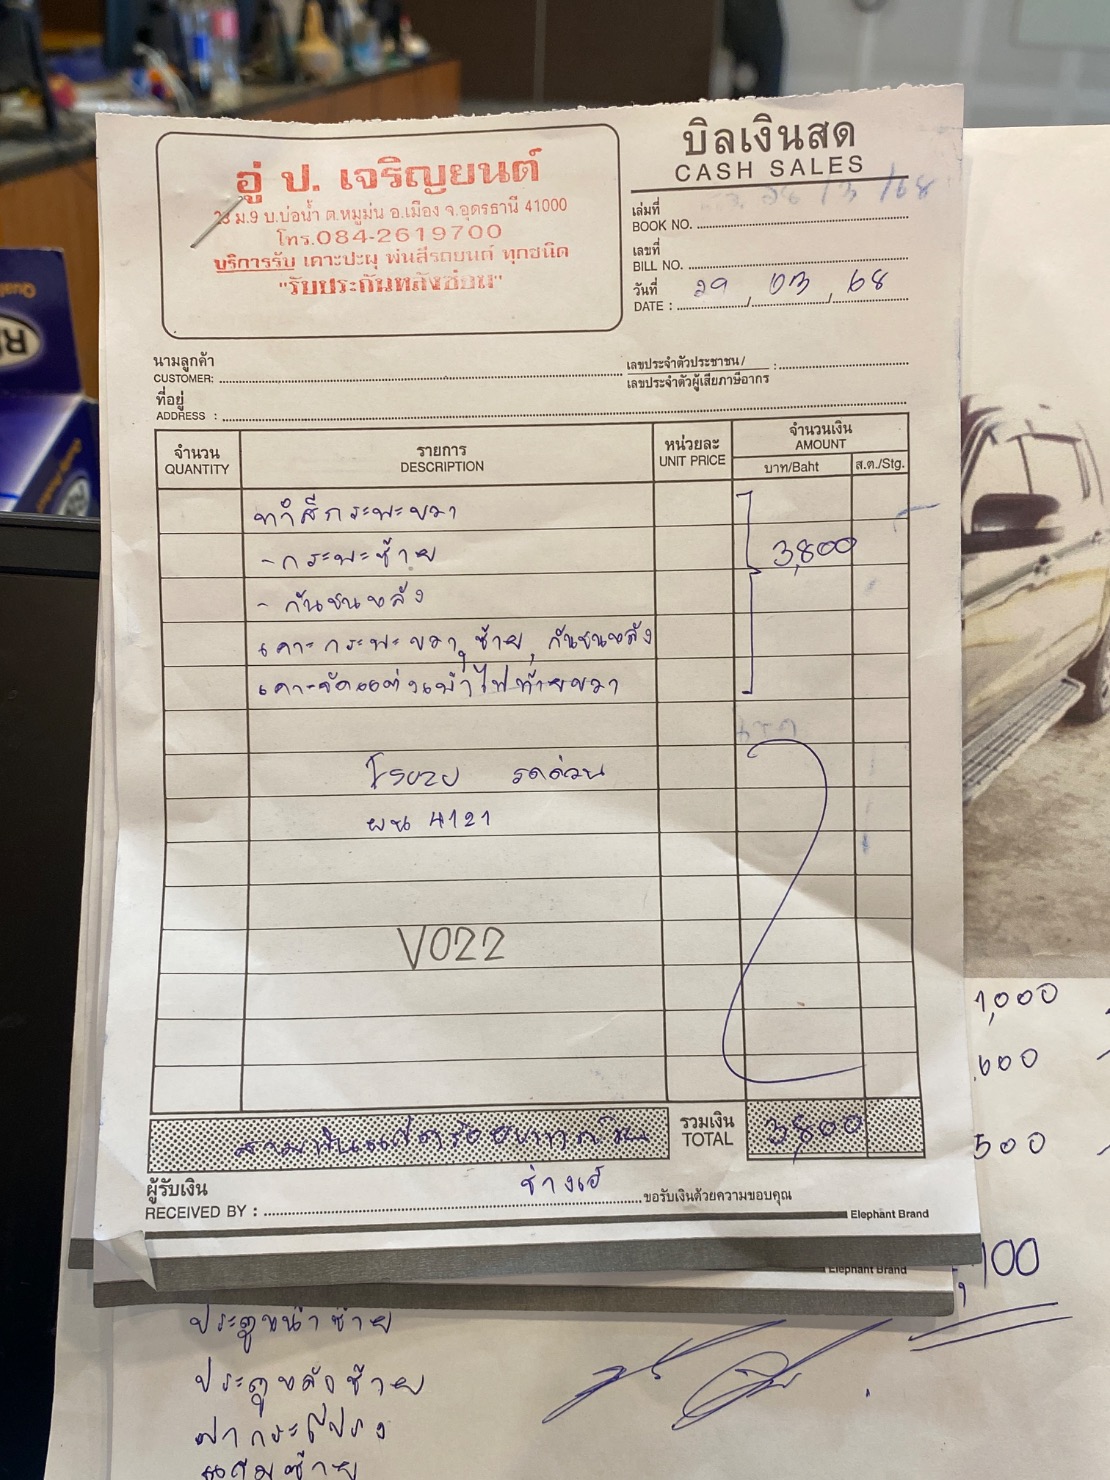 อู่ ป. เจริญยนต์
23 ม.9 บ.บ่อน้ำ ต.หมูม่น อ.เมือง จ.อุดรธานี 41000
โทร.084-2619700
บริการรับ เคาะปะผุ พ่นสีรถยนต์ ทุกชนิด
"รับประกันหลังซ่อม"
บิลเงินสด
CASH SALES
28/3/68
เล่มที่
BOOK NO.
เลขที่
BILL NO.
วันที่
DATE : 29 / 03 / 68
นามลูกค้า
CUSTOMER:
เลขประจำตัวประชาชน /
เลขประจำตัวผู้เสียภาษีอากร :
ที่อยู่
ADDRESS :
จำนวน
QUANTITY
รายการ
DESCRIPTION
หน่วยละ
UNIT PRICE
จำนวนเงิน
AMOUNT
บาท/Baht
ส.ต./Stg.
ทำสีกระพะขวา
- กระพะซ้าย
3,800
- กันชนหลัง
เคาะกระพะขวา, ซ้าย, กันชนหลัง
เคาะจัดแต่งเบ้าไฟท้ายขวา
Isuzu รถด่วน
ผน 4121
V022
สามพันแปดร้อยบาทถ้วน
รวมเงิน
TOTAL
3,800
ผู้รับเงิน
RECEIVED BY : ช่างเอ๋
ขอรับเงินด้วยความขอบคุณ
Elephant Brand
Elephant Brand
1,000
600
500
,100
ประตูหน้าซ้าย
ประตูหลังซ้าย
ฝากระโปรง
แก้มซ้าย